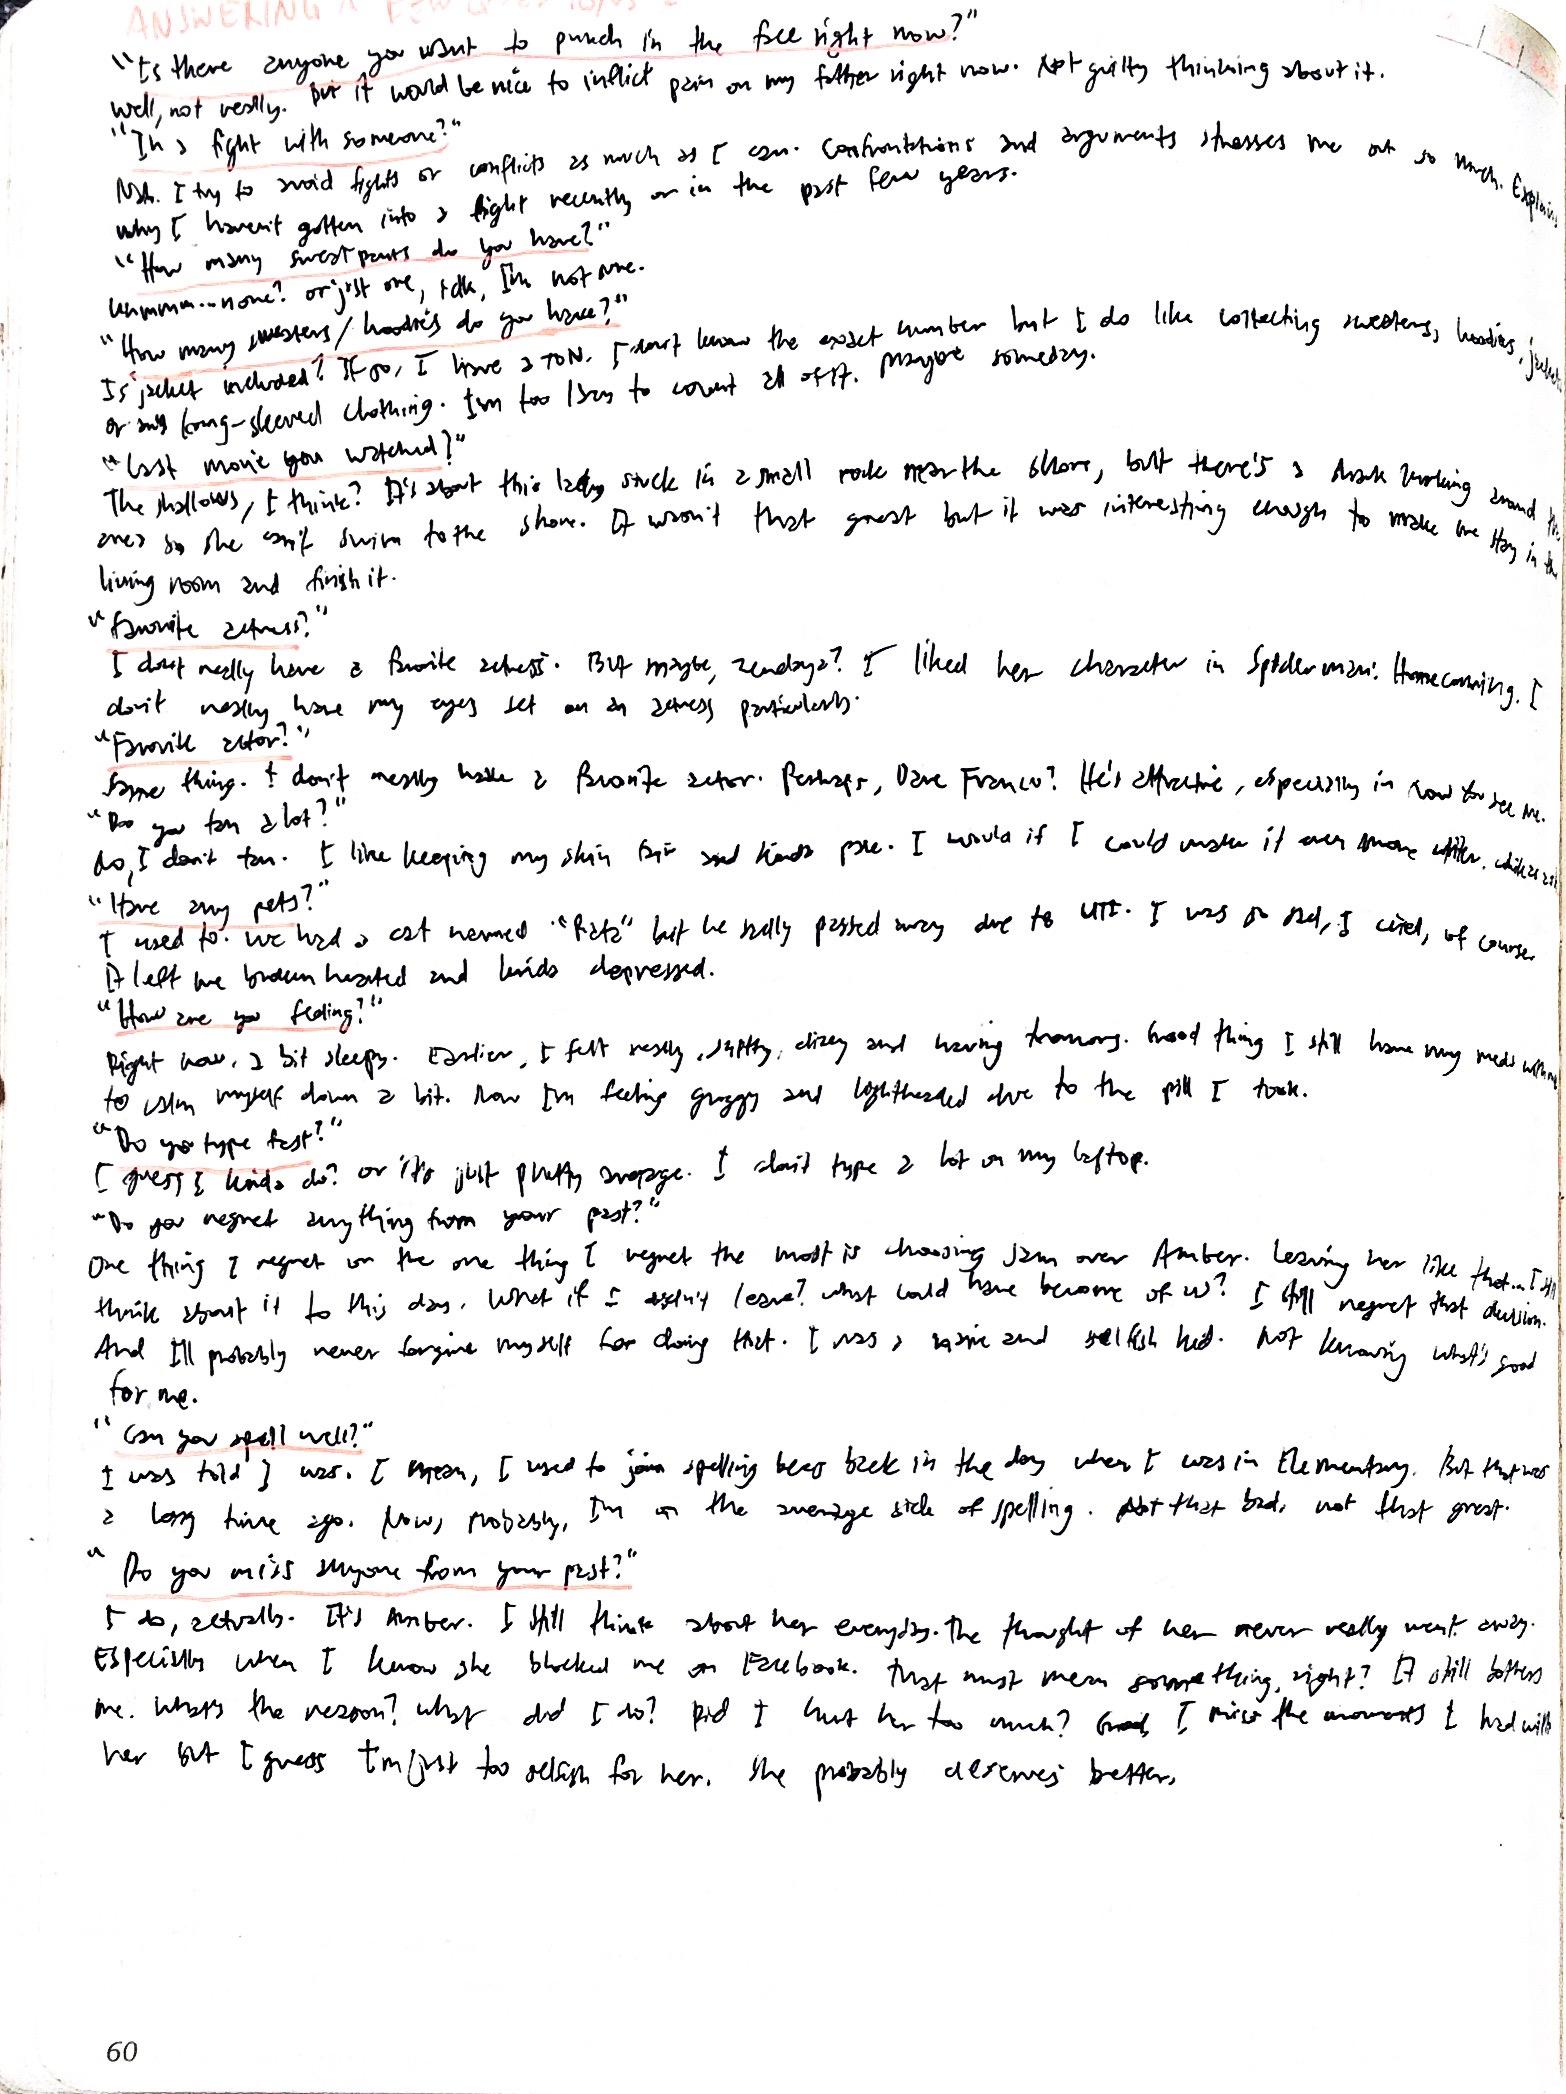 ANSWERING A FEW QUESTIONS
"Is there anyone you want to punch in the face right now?"
Well, not really. But it would be nice to inflict pain on my father right now. Not guilty thinking about it.
"In a fight with someone?"
Nah. I try to avoid fights or conflicts as much as I can. Confrontations and arguments stresses me out so much. Explains
why I haven't gotten into a fight recently or in the past few years.
"How many sweatpants do you have?"
Ummmm...none? or just one, idk, I'm not sure.
"How many sweaters/hoodies do you have?"
Is jacket included? If so, I have a TON. I don't know the exact number but I do like collecting sweaters, hoodies, jackets
or any long-sleeved clothing. I'm too lazy to count all of it. Maybe someday.
"Last movie you watched?"
The shallows, I think? It's about this lady stuck in a small rock near the shore, but there's a shark lurking around the
area so she can't swim to the shore. It wasn't that great but it was interesting enough to make me stay in the
living room and finish it.
"Favorite actress?"
I don't really have a favorite actress. But maybe, zendaya? I liked her character in Spiderman: Homecoming. I
don't really have my eyes set on an actress particularly.
"Favorite actor?"
Same thing. I don't really have a favorite actor. Perhaps, Dave Franco? He's attractive, especially in now you see me.
"Do you tan a lot?"
No, I don't tan. I like keeping my skin fair and kinda pale. I would if I could make it even more whiter.
"Have any pets?"
I used to. We had a cat named "Rata" but he sadly passed away due to UTI. I was so sad, I cried, of course.
It left me broken hearted and kinda depressed.
"How are you feeling?"
Right now, a bit sleepy. Earlier, I felt really, dizzy and having tremors. Good thing I still have my meds with me
to calm myself down a bit. Now I'm feeling groggy and lightheaded due to the pill I took.
"Do you type fast?"
I guess I kinda do? or it's just pretty average. I don't type a lot on my laptop.
"Do you regret anything from your past?"
One thing I regret or the one thing I regret the most is choosing Jam over Amber. Leaving her like that... I still
think about it to this day. What if I didn't leave? what could have become of us? I still regret that decision.
And I'll probably never forgive myself for doing that. I was a naive and selfish kid. Not knowing what's good
for me.
"Can you spell well?"
I was told I was. I mean, I used to join spelling bees back in the day when I was in Elementary. But that was
a long time ago. Now, probably, I'm on the average side of spelling. Not that bad, not that great.
"Do you miss anyone from your past?"
I do, actually. It's Amber. I still think about her everyday. The thought of her never really went away.
Especially when I know she blocked me on Facebook. That must mean something, right? It still bothers
me. What's the reason? what did I do? Did I hurt her too much? I miss the moments I had with
her but I guess I'm just too selfish for her. She probably deserves better.
60